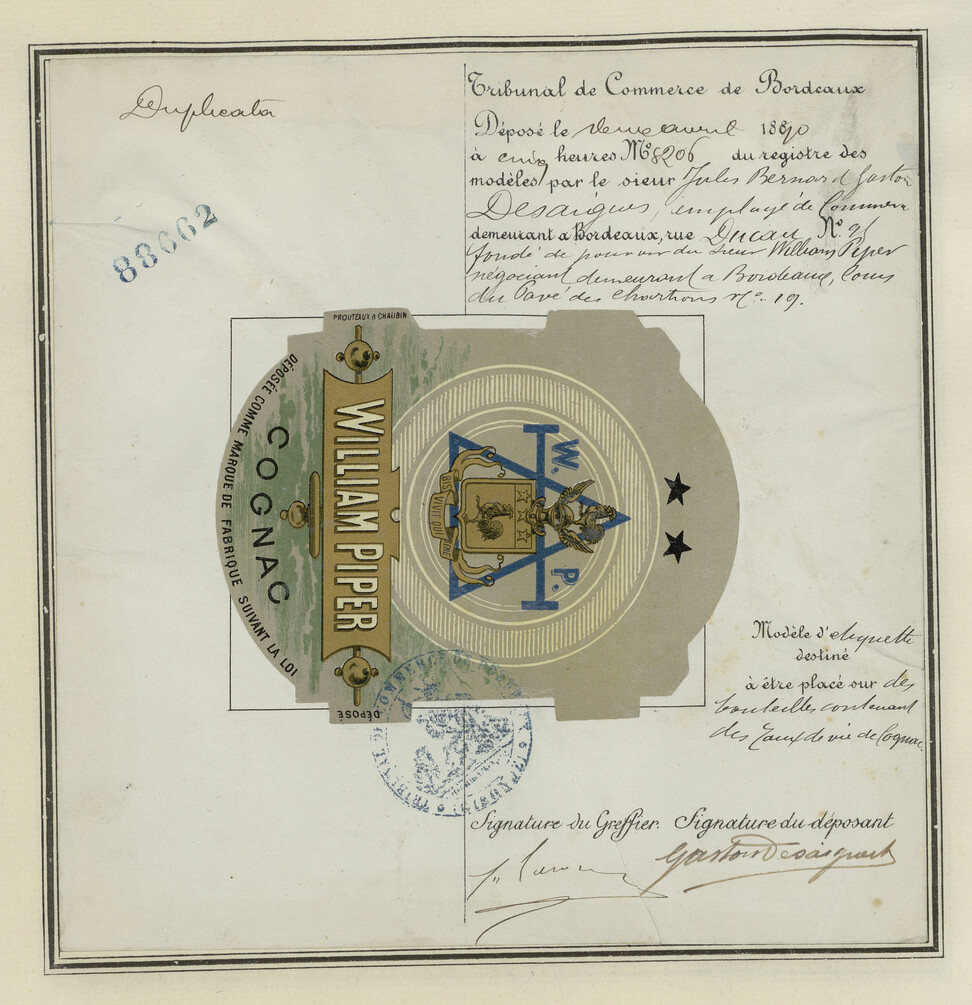 Duplicata
88662
Tribunal de Commerce de Bordeaux
Déposé le deux avril 1890
à cinq heures No 8206 du registre des
modèles, par le sieur Jules Bernard Gaston
Desaigues, employé de Commerce
demeurant a Bordeaux, rue Ducau No 9
fondé de pouvoir du sieur William Piper
négociant demeurant a Bordeaux, Cours
du Pavé des Chartrons No. 19.
PROUTEAUX & CHAUBIN
DÉPOSÉE COMME MARQUE DE FABRIQUE SUIVANT LA LOI
COGNAC
WILLIAM PIPER
BIS VIVIT QUI BENE
W. P.
DÉPOSÉ
Modèle d'etiquette
destiné
à être placé sur des
bouteilles contenant
des Eaux de vie de Cognac.
Signature du Greffier. Signature du déposant
Gaston Desaigues